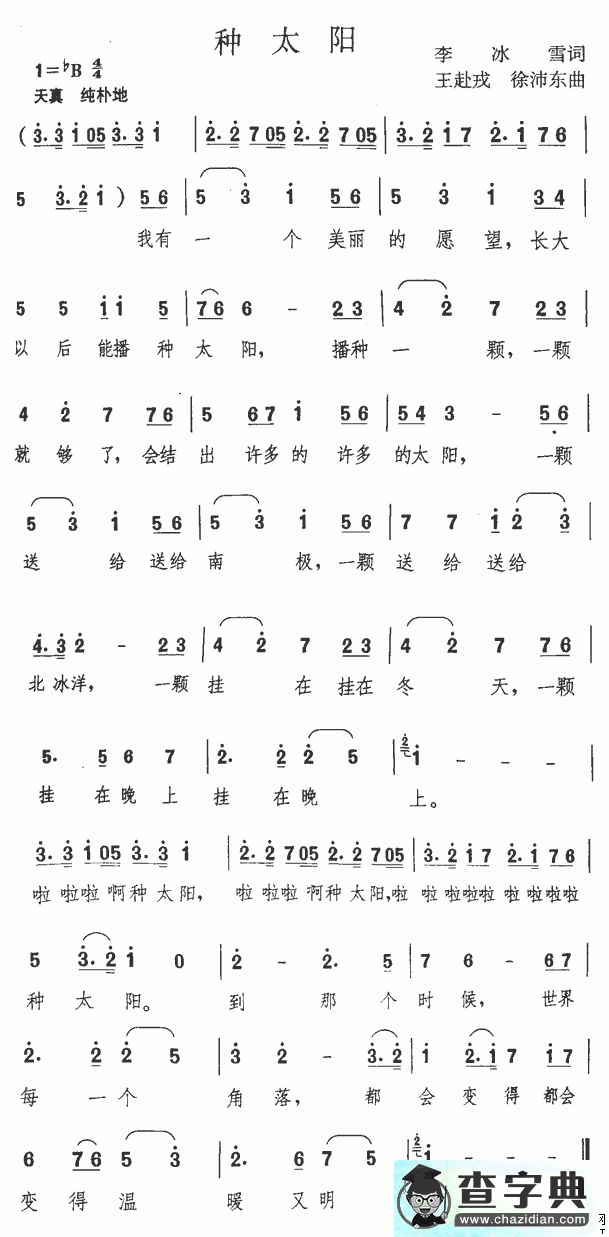 种太阳
1=♭B 4/4
李冰雪词
天真 纯朴地
王赴戎 徐沛东曲
(3·3 1 05 3·3 1 | 2·2 7 05 2·2 7 05 | 3·2 1 7 2·1 7 6 |
5 3·2 1) 5 6 | 5 3 1 5 6 | 5 3 1 3 4 |
我有一个美丽的愿望,长大
5 5 1 1 5 | 7 6 6 - 2 3 | 4 2 7 2 3 |
以后能播种太阳,播种一颗,一颗
4 2 7 7 6 | 5 6 7 1 5 6 | 5 4 3 - 5 6 |
就够了,会结出许多的许多的太阳,一颗
5 3 1 5 6 | 5 3 1 5 6 | 7 7 1 2 3 |
送给送给南极,一颗送给送给
4·3 2 - 2 3 | 4 2 7 2 3 | 4 2 7 7 6 |
北冰洋,一颗挂在挂在冬天,一颗
5· 5 6 7 | 2· 2 2 5 | 2 1 - - - |
挂在晚上挂在晚上。
3·3 1 05 3·3 1 | 2·2 7 05 2·2 7 05 | 3·2 1 7 2·1 7 6 |
啦啦啦啊种太阳,啦啦啦啊种太阳,啦啦啦啦啦啦啦啦啦
5 3·2 1 0 | 2 - 2· 5 | 7 6 - 6 7 |
种太阳。到那个时候,世界
2· 2 2 5 | 3 2 - 3·2 | 1 2·1 7 1 7 |
每一个角落,都会变得都会
6 7 6 5 3 | 2· 6 7 5 | 2 1 - - - ‖
变得温暖又明
查字典
www.chazidian.com